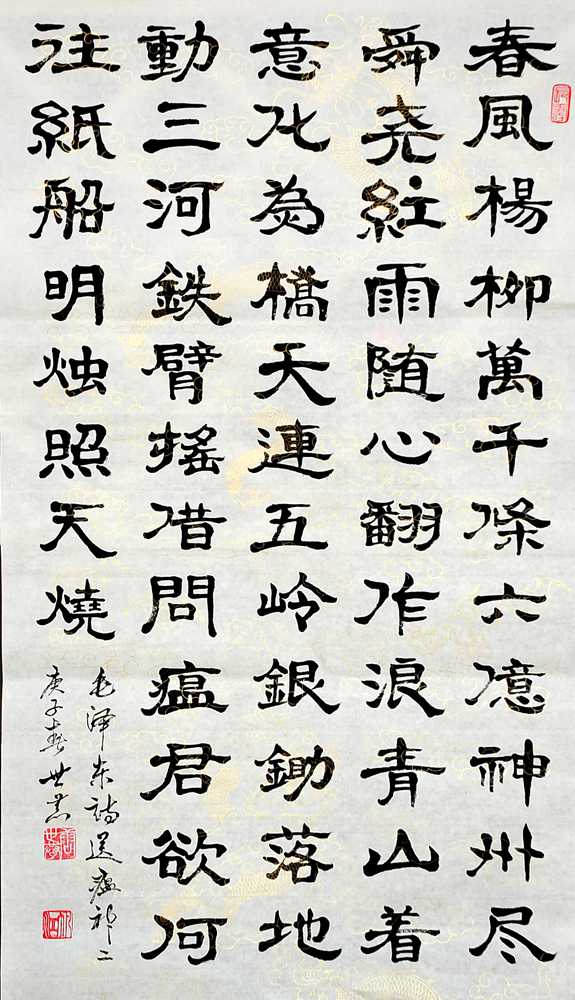 春風楊柳萬千條六億神州尽
舜尧紅雨随心翻作浪青山着
意化為橋天連五岭銀鋤落地
動三河鉄臂搖借問瘟君欲何
往紙船明烛照天燒
毛泽东诗送瘟神二
庚子春世